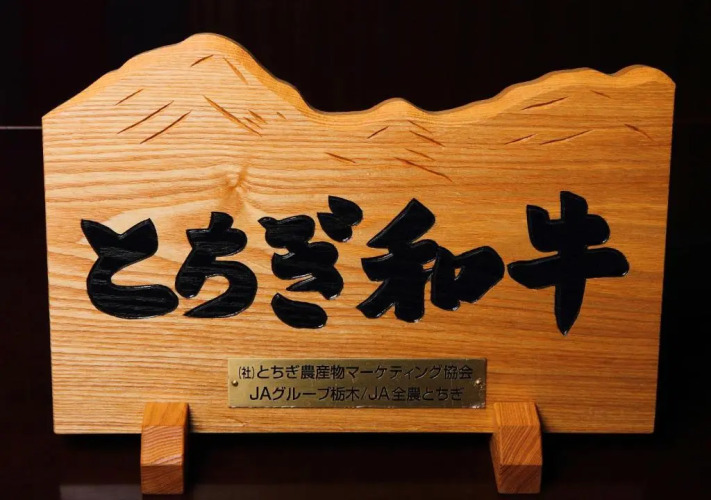 とちぎ和牛
(社)とちぎ農産物マーケティング協会
JAグループ栃木/JA全農とちぎ